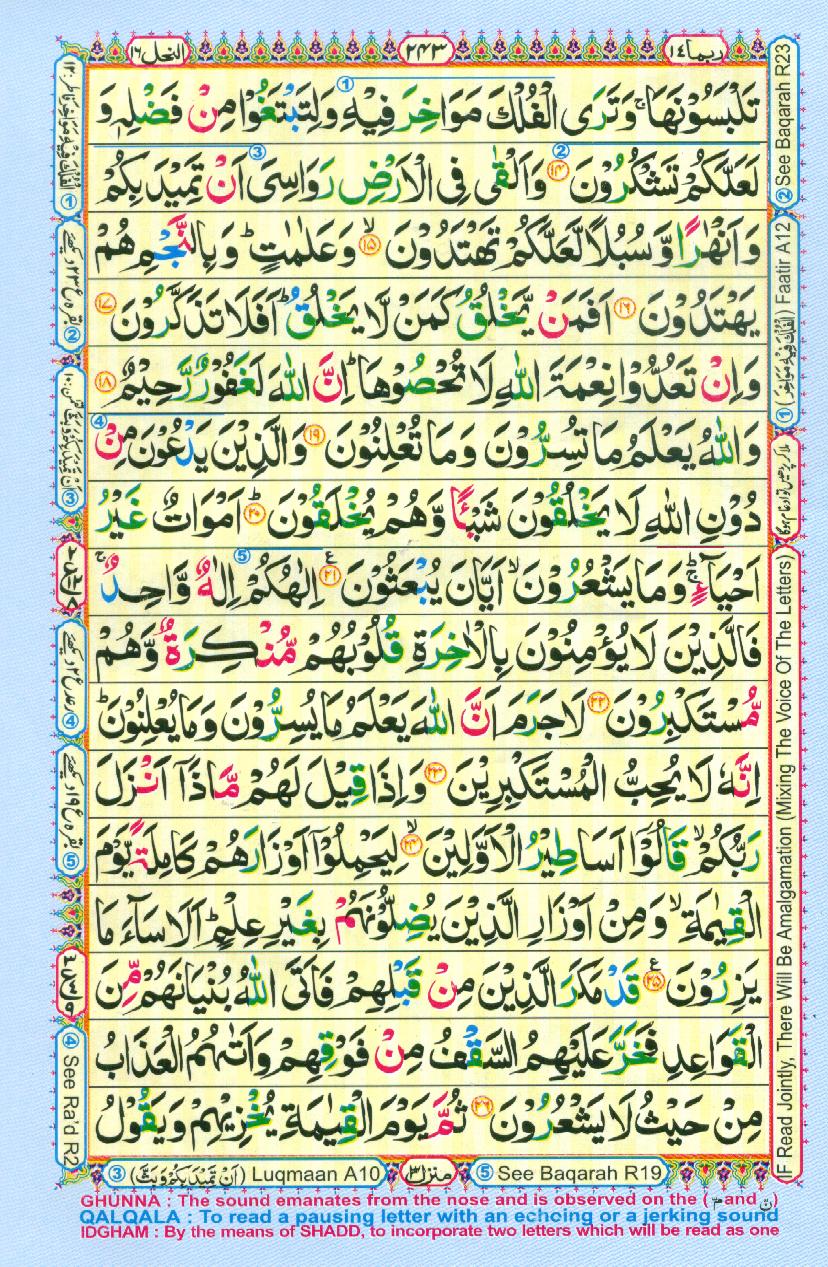 النحل ١٦
٢٤٣
ربما ١٤
تَلْبَسُوْنَهَا ۚ وَتَرَى الْفُلْكَ مَوَاخِرَ فِيْهِ وَلِتَبْتَغُوْا مِنْ فَضْلِهٖ وَ
لَعَلَّكُمْ تَشْكُرُوْنَ ۝۱۴ وَاَلْقٰى فِى الْاَرْضِ رَوَاسِىَ اَنْ تَمِيْدَ بِكُمْ
وَاَنْهٰرًا وَّسُبُلًا لَّعَلَّكُمْ تَهْتَدُوْنَ ۝۱۵ۙ وَعَلٰمٰتٍ ؕ وَبِالنَّجْمِ هُمْ
يَهْتَدُوْنَ ۝۱۶ اَفَمَنْ يَّخْلُقُ كَمَنْ لَّا يَخْلُقُ ؕ اَفَلَا تَذَكَّرُوْنَ ۝۱۷
وَاِنْ تَعُدُّوْا نِعْمَةَ اللّٰهِ لَا تُحْصُوْهَا ؕ اِنَّ اللّٰهَ لَغَفُوْرٌ رَّحِيْمٌ ۝۱۸
وَاللّٰهُ يَعْلَمُ مَا تُسِرُّوْنَ وَمَا تُعْلِنُوْنَ ۝۱۹ وَالَّذِيْنَ يَدْعُوْنَ مِنْ
دُوْنِ اللّٰهِ لَا يَخْلُقُوْنَ شَيْـًٔا وَّهُمْ يُخْلَقُوْنَ ۝۲۰ؕ اَمْوَاتٌ غَيْرُ
اَحْيَآءٍ ۚ وَمَا يَشْعُرُوْنَ ۙ اَيَّانَ يُبْعَثُوْنَ ۝۲۱ اِلٰهُكُمْ اِلٰهٌ وَّاحِدٌ ۚ
فَالَّذِيْنَ لَا يُؤْمِنُوْنَ بِالْاٰخِرَةِ قُلُوْبُهُمْ مُّنْكِرَةٌ وَّهُمْ
مُّسْتَكْبِرُوْنَ ۝۲۲ لَا جَرَمَ اَنَّ اللّٰهَ يَعْلَمُ مَا يُسِرُّوْنَ وَمَا يُعْلِنُوْنَ ؕ
اِنَّهٗ لَا يُحِبُّ الْمُسْتَكْبِرِيْنَ ۝۲۳ وَاِذَا قِيْلَ لَهُمْ مَّاذَاۤ اَنْزَلَ
رَبُّكُمْ ۙ قَالُوْۤا اَسَاطِيْرُ الْاَوَّلِيْنَ ۝۲۴ۙ لِيَحْمِلُوْۤا اَوْزَارَهُمْ كَامِلَةً يَّوْمَ
الْقِيٰمَةِ ۙ وَمِنْ اَوْزَارِ الَّذِيْنَ يُضِلُّوْنَهُمْ بِغَيْرِ عِلْمٍ ؕ اَلَا سَآءَ مَا
يَزِرُوْنَ ۝۲۵ قَدْ مَكَرَ الَّذِيْنَ مِنْ قَبْلِهِمْ فَاَتَى اللّٰهُ بُنْيَانَهُمْ مِّنَ
الْقَوَاعِدِ فَخَرَّ عَلَيْهِمُ السَّقْفُ مِنْ فَوْقِهِمْ وَاَتٰىهُمُ الْعَذَابُ
مِنْ حَيْثُ لَا يَشْعُرُوْنَ ۝۲۶ ثُمَّ يَوْمَ الْقِيٰمَةِ يُخْزِيْهِمْ وَيَقُوْلُ
② See Baqarah R23
① (الْفُلْكَ فِيْهِ مَوَاخِرَ) Faatir A12
IF Read Jointly, There Will Be Amalgamation (Mixing The Voice Of The Letters)
④ See Ra'd R2
③ (اَنْ تَمِيْدَ بِكُمْ وَبَثَّ) Luqmaan A10
منزل ٣
⑤ See Baqarah R19
GHUNNA : The sound emanates from the nose and is observed on the (مّ and نّ)
QALQALA : To read a pausing letter with an echoing or a jerking sound
IDGHAM : By the means of SHADD, to incorporate two letters which will be read as one